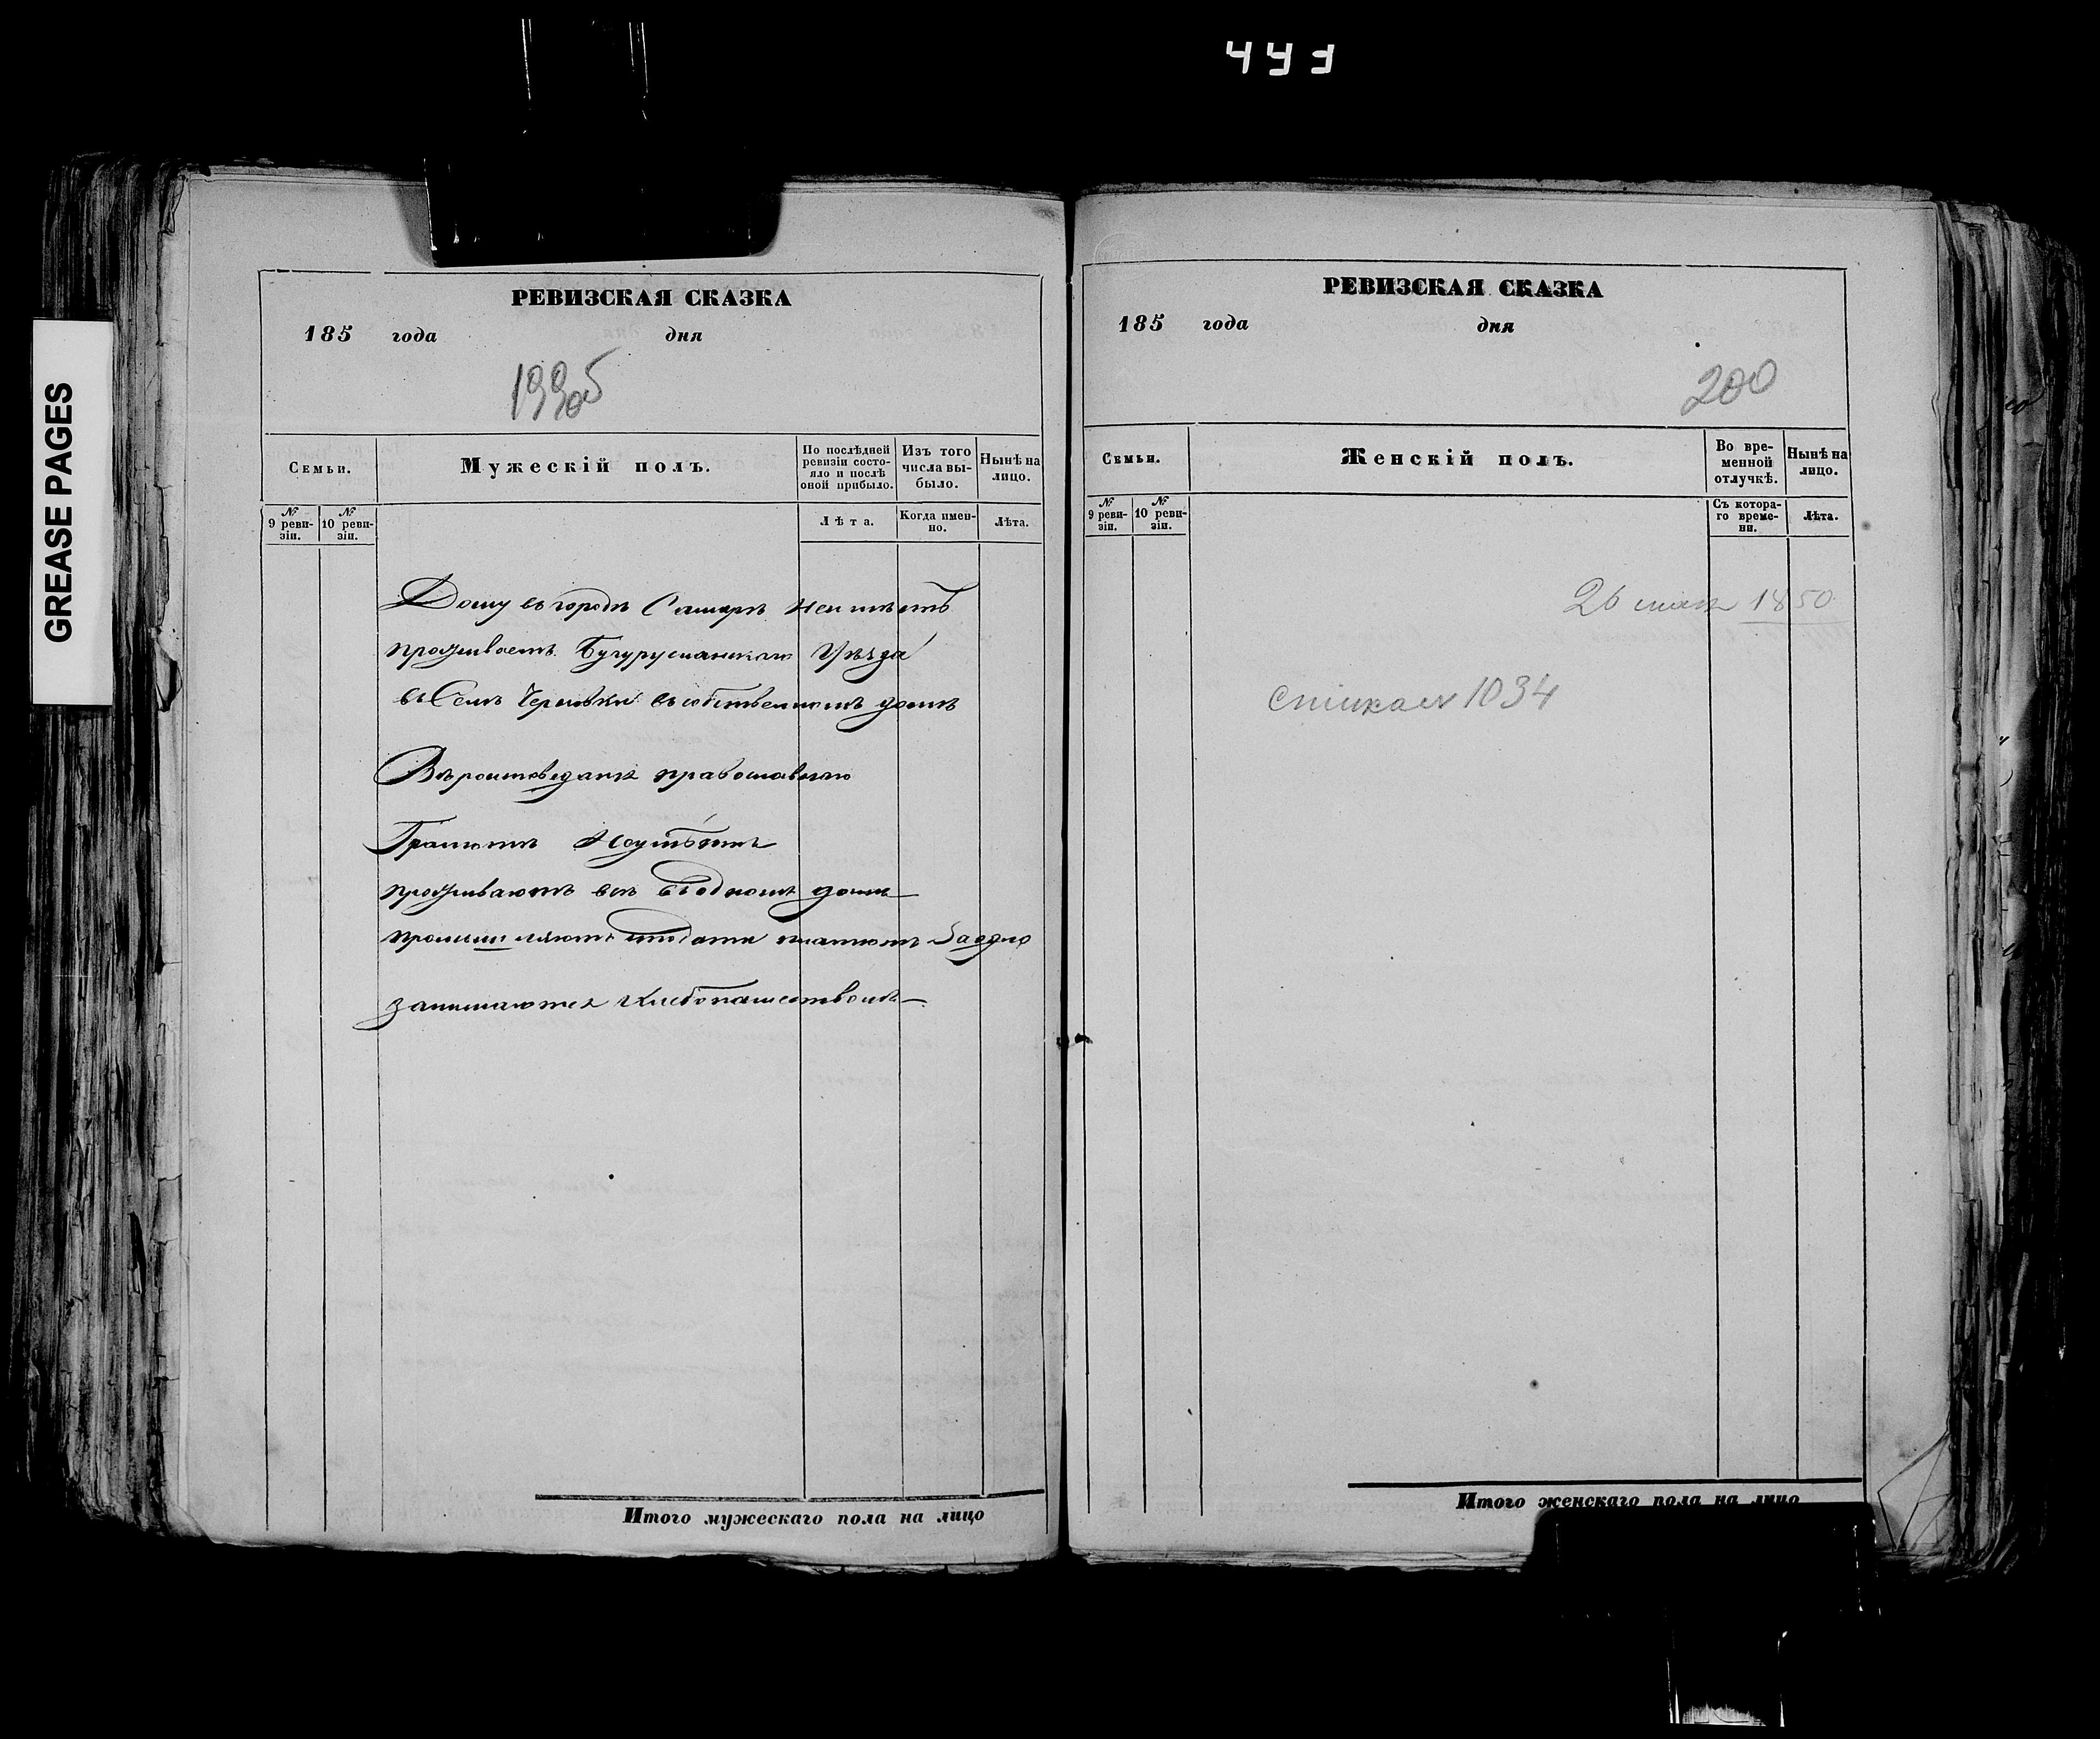 443
GREASE PAGES
РЕВИЗСКАЯ СКАЗКА
185 года дня
199об
Семьи.
Мужескій полъ.
По послѣдней ревизіи состояло и послѣ оной прибыло.
Изъ того числа выбыло.
Нынѣ на лицо.
№ 9 ревизіи.
№ 10 ревизіи.
Лѣта.
Когда именно.
Лѣта.
Дому въ городѣ Самарѣ неимѣетъ
проживаетъ Бугурусланскаго Уѣзда
въ Селѣ Черновки въ собственномъ домѣ
Вѣроисповеданія православнаго
Грамотѣ Неумѣютъ
проживаютъ всѣ въ одномъ домѣ
промышляютъ и подати платютъ Заодно
занимаются хлебопашествомъ
Итого мужескаго пола на лицо
РЕВИЗСКАЯ СКАЗКА
185 года дня
200
Семьи.
Женскій полъ.
Во временной отлучкѣ.
Нынѣ на лицо.
№ 9 ревизіи.
№ 10 ревизіи.
Съ котораго времени.
Лѣта.
26 мая 1850
1034
Итого женскаго пола на лицо